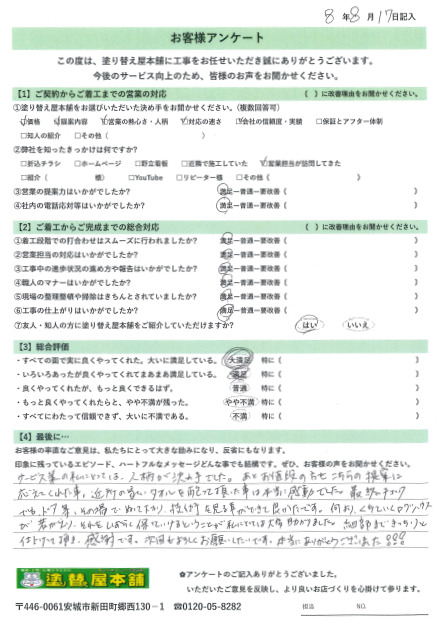 8 年 8 月 17 日記入
お客様アンケート
この度は、塗り替え屋本舗に工事をお任せいただき誠にありがとうございます。
今後のサービス向上のため、皆様のお声をお聞かせください。
【1】ご契約からご着工までの営業の対応 ( )に改善理由をお聞かせください。
①塗り替え屋本舗をお選びいただいた決め手をお聞かせください。(複数回答可)
☑価格 ☑提案内容 ☑営業の熱心さ・人柄 ☑対応の速さ ☑会社の信頼度・実績 □保証とアフター体制
□知人の紹介 □その他( )
②弊社を知ったきっかけは何ですか?
□折込チラシ □ホームページ □野立看板 □近隣で施工していた ☑営業担当が訪問してきた
□紹介( 様) □YouTube □リピーター様 □その他( )
③営業の提案力はいかがでしたか? 満足ー普通ー要改善( )
④社内の電話応対等はいかがでしたか? 満足ー普通ー要改善( )
【2】ご着工からご完成までの総合対応 ( )に改善理由をお聞かせください。
①着工段階での打合わせはスムーズに行われましたか? 満足ー普通ー要改善( )
②営業担当の対応はいかがでしたか? 満足ー普通ー要改善( )
③工事中の進歩状況の進め方や報告はいかがでしたか? 満足ー普通ー要改善( )
④職人のマナーはいかがでしたか? 満足ー普通ー要改善( )
⑤現場の整理整頓や掃除はきちんとされていましたか? 満足ー普通ー要改善( )
⑥工事の仕上がりはいかがでしたか? 満足ー普通ー要改善( )
⑦友人・知人の方に塗り替え屋本舗をご紹介していただけますか? はい いいえ
【3】総合評価
・すべての面で実に良くやってくれた。大いに満足している。 大満足 特に( )
・いろいろあったが良くやってくれてまあまあ満足している。 満足 特に( )
・良くやってくれたが、もっと良くできるはず。 普通 特に( )
・もっと良くやってくれたらと、やや不満が残った。 やや不満 特に( )
・すべてにわたって信頼できず、大いに不満である。 不満 特に( )
【4】最後に…
お客様の率直なご意見は、私たちにとって大きな励みになり、反省にもなります。
印象に残っているエピソード、ハートフルなメッセージどんな事でも結構です。ぜひ、お客様の声をお聞かせください。
サービス業の私にとっては、人柄が決め手でした。あとお値段の方もこちらの提案に
応えてくれた事、近所の方に タオルを配って頂いた事は本当に感動でした。
感謝です。次回もよろしくお願いしたいです。本当にありがとうございました!!!
塗り替え屋本舗
✿アンケートのご記入ありがとうございました。
いただいたご意見を反映し、より良いお店づくりを心掛けて参ります。
〒446-0061安城市新田町郷西130−1 ☎0120-05-8282
担当 NO.